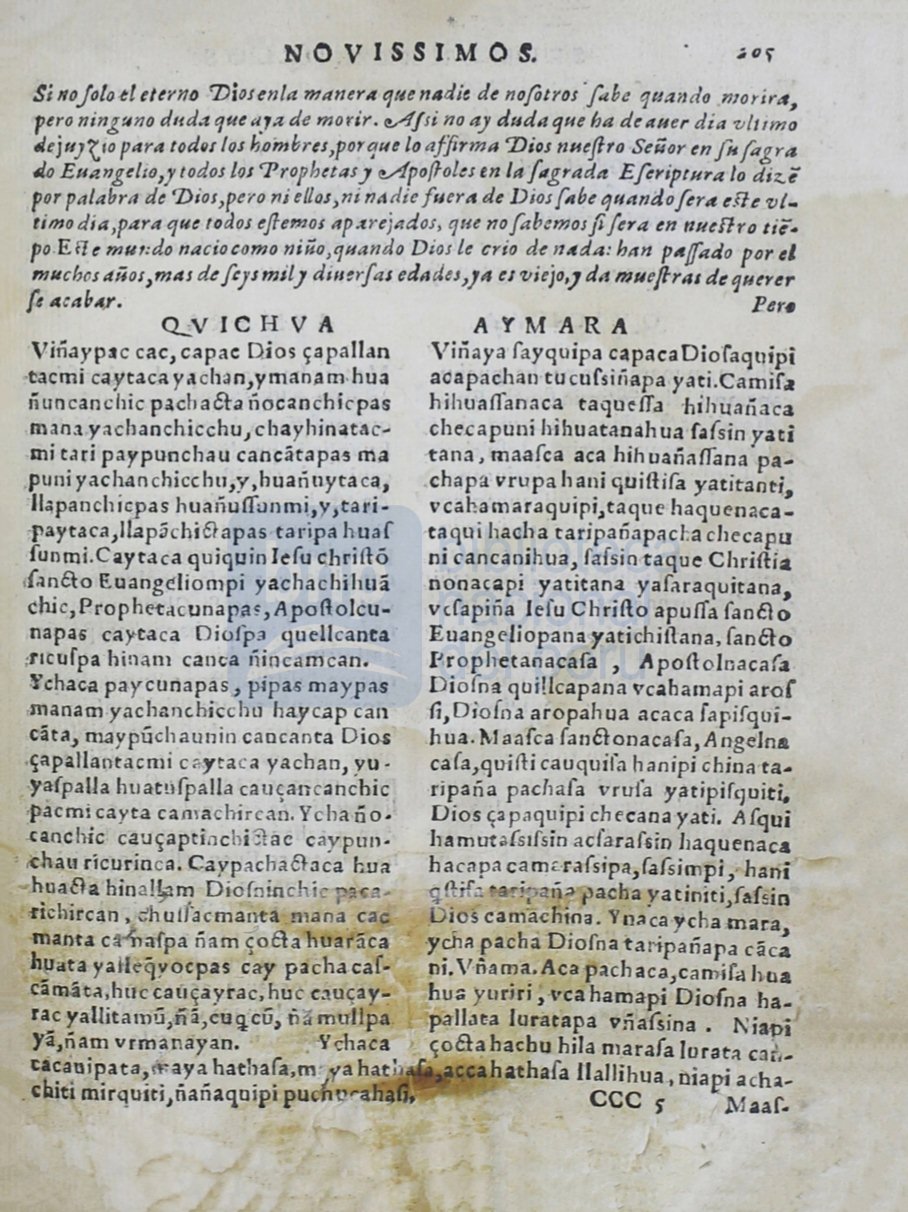 NOVISSIMOS. 205
Si no ſolo el eterno Dios enla manera que nadie de noſotros ſabe quando morira,
pero ninguno duda que aya de morir. Aſsi no ay duda que ha de auer dia vltimo
de juyzio para todos los hombres, porque lo affirma Dios nueſtro Señor en ſu ſagra
do Euangelio, y todos los Prophetas y Apoſtoles en la ſagrada Eſcriptura lo dizẽ
por palabra de Dios, pero ni ellos, ni nadie fuera de Dios ſabe quando ſera eſte vl-
timo dia, para que todos eſtemos aparejados, que no ſabemos ſi ſera en nueſtro tiẽ-
po Eſte mundo nacio como niño, quando Dios le crio de nada: han paſſado por el
muchos años, mas de ſeys mil y diuerſas edades, ya es viejo, y da mueſtras de querer
ſe acabar. Pero
QVICHVA
Viñaypac cac, capac Dios çapallan
tacmi caytaca yachan, ymanam hua
ñuncanchic pachacta ñocanchicpas
mana yachanchicchu, chayhinatac-
mi tari paypunchau cancãtapas ma
puni yachanchicchu, y, huañuytaca,
llapanchicpas huañuſſunmi, y, tari-
paytaca, llapãchictapas taripa huaſ
ſunmi. Caytaca quiquin Ieſu chriſtõ
ſancto Euangeliompi yachachihuã
chic, Prophetacunapas, Apoſtolcu-
napas caytaca Dioſpa quellcanta
ricuſpa hinam canca ñincamcan.
Ychaca paycunapas, pipas maypas
manam yachanchicchu haycap can
cãta, maypũchaunin cancanta Dios
çapallantacmi caytaca yachan, yu-
yaſpalla huatuſpalla cauçancanchic
pacmi cayta camachircan. Ycha ño-
canchic cauçaptinchictac caypun-
chau ricurinca. Caypachactaca hua
huacta hinallam Dioſninchic paca-
richircan, chuſſacmanta mana cac
manta camaſpa ñam çocta huarãca
huata yalleq̃vocpas cay pacha caſ-
cãmãta, huc cauçayrac, huc cauçay-
rac yallitamũ, ñã, cuq̃cũ, ñã mullpa
yã, ñam vrmanayan. Ychaca
AYMARA
Viñaya ſayquipa capaca Dioſaquipi
acapachan tucuſsiñapa yati. Camiſa
hihuaſſanaca taqueſſa hihuañaca
checapuni hihuatanahua ſaſsin yati
tana, maaſca aca hihuañaſſana pa-
chapa vrupa hani quiſtiſa yatitanti,
vcahamaraquipi, taque haquenaca-
taqui hacha taripañapacha checapu
ni cancanihua, ſaſsin taque Chriſtia
nonacapi yatitana yaſaraquitana,
vcſapiña Ieſu Chriſto apuſſa ſancto
Euangeliopana yatichiſtana, ſancto
Prophetanacaſa, Apoſtolnacaſa
Dioſna quillcapana vcahamapi aroſ
ſi, Dioſna aropahua acaca ſapiſqui-
hua. Maaſca ſanctonacaſa, Angelna
caſa, quiſti cauquiſa hanipi china ta-
ripaña pachaſa vruſa yatipiſquiti,
Dios çapaquipi checana yati. Aſqui
hamutaſsiſsin acſaraſsin haquenaca
hacapa camaraſsipa, ſaſsimpi, hani
q̃ſtiſa taripaña pacha yatiniti, ſaſsin
Dios camachina. Ynaca ycha mara,
ycha pacha Dioſna taripañapa cãca
ni. Vñama. Aca pachaca, camiſa hua
hua yuriri, vca hamapi Dioſna ha-
pallata luratapa vñaſsina. Niapi
çocta hachu hila maraſa lurata can-
cacauipata, maya hathaſa, maya hathaſa, acca hathaſa llallihua, niapi acha-
chiti mirquiti, ñañaquipi puchucahaſi,
CCC 5 Maaſ-